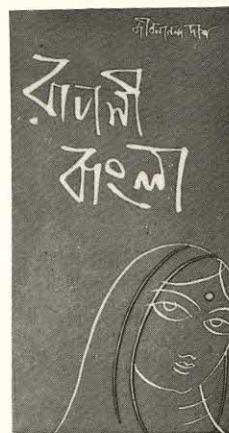 জীবনানন্দ দাশ
রূপসী
বাংলা